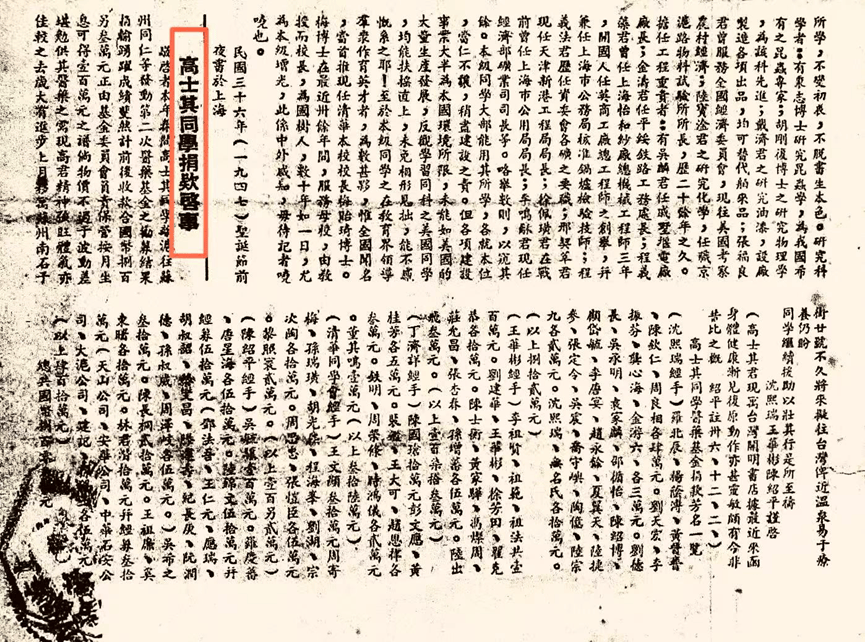 所學,不變初衷,不脫書生本色。研究科
學者:有東志博士研究昆蟲學,為我國希
有之昆蟲專家;胡剛復博士之研究物理學
,為該科先進;戴濟君之研究油漆,設廠
製造各項出品,均可替代舶來品;張福良
君曾服務全國經濟委員會,現往美國考察
農村經濟;陸寶淦君之研究化學,任職京
滬路物料試驗所所長,歷二十餘年之久。
擔任工程重責者:有吳麟君任戚墅堰電廠
廠長;金濤君任平綏鐵路工務處長;程義
藻君曾任上海怡和紗廠總機械工程師三年
,開國人任英商工廠總工程師之創舉,幷
兼任上海市公務局核准鍋爐檢驗技師;程
義法君歷任資委會各礦之要職;那契莘君
現任天津新港工程局局長;徐佩璜君在戰
前曾任上海市公用局局長;李鳴龢君現任
經濟部礦業司司長等。略舉數則,以槪其
餘。本級同學大部能用其所學,各就本位
,當仁不讓,稍盡建設之責。但各項建設
事業大半為本國環境所限,未能如美國的
大量生產發展,反觀學習同科之美國同學
,均能扶搖直上,未免相形見拙,能不感
慨系之耶!至於本級同學之在教育界領導
羣衆作育英才者,為數甚夥,惟全國聞名
,當首推現任清華本校校長梅貽琦博士。
梅博士在最近卅餘年間,服務母校,由敎
授而校長,為國樹人,數十年如一日,尤
為本級增光,此係中外咸知,毋待記者曉
曉也。
民國三十六年(一九四七)聖誕節前
夜書於上海
高士其同學捐欵啓事
敬啓者本年春間高士其同學
州同仁等發動第二次醫藥基金之勸募結果
捐輸踴躍成績斐然計前後收欵合國幣捌百
另叁萬元正由基金委員會負責保管按月生
息可得壹百萬元之譜倘物價不過于波動差
堪勉供其醫藥之需現高君精神強旺體氣亦
佳較之去歲大有進步上月 蘇州南石子
街廿號不久將來擬往台灣俾近溫泉易于療
養仍盼
同學繼續援助以壯其行是所至禱
沈熙瑞王華彬陳紹平謹啓
(高士其君現寓台灣開明書店據最近來函
身體健康漸見復原動作亦甚靈敏頗有今非
昔比之槪 紹平註卅六、十二、二、)
高士其同學醫藥基金捐欵芳名一覽
(沈熙瑞經手)羅北辰、楊蔭溥、黃 
、陳欽仁、周良相各肆萬元。劉天宏、李
振芬、龔心海、金 六、各三萬元。劉德
長、吳承明、袁家麟、邵循怡、陳紹博、
顧岱毓、李唐晏、趙永餘、夏翼天、陸捷
參、張定令、吳宸、喬守嶸、陶億、陸宗
九各貳萬元。沈熙瑞、無名氏各拾萬元。
(以上捌拾貳萬元)
(王華彬經手)李祖賢、祖範、祖法共壹
百萬元。劉建華、王華彬、徐芳田、瞿克
恭各拾萬元。陳士衡、黃家驊、馮燦周、
莊允昌、張杏春、孫增蕃各伍萬元。陸出
飛叁萬元。(以上壹百柒拾叁萬元)
(丁濟詳經手)陳國 拾萬元彭文應、黃
桂芳各五萬元。裴鑑、王大可、趙恩律各
叁萬元。欽明、周榮條、時鴻儀各貳萬元
。童其鳴壹萬元(以上叁拾陸萬元)
(清華同學會經手)王文顯叁拾萬元周寄
梅、孫瑞璜、胡光 、程海峯、劉湖、宗
次陶各拾萬元。周昌忠、張愷臣各伍萬元
。黎照寰貳萬元。(以上壹百另貳萬元)
(陳紹平經手)吳 壹百萬元。羅慶蕃
、唐星海各伍拾萬元。陸錦文伍拾萬元幷
經募伍拾萬元(鄧法吾、王仁元、應瑞、
胡叔韶、 雙昌、 、紀長庚、阮潤
德、孫叔威、周澤岐各伍萬元)。吳希之
叁拾萬元。陳長桐貳拾萬元。王祖廉、奚
東曙各拾萬元。林君潛拾萬元幷經募叁拾
萬元(天山公司、安華公司、中華石安公
司、大滬公司、建記、 各五萬元
(以上肆百拾萬元)
總共國幣捌百